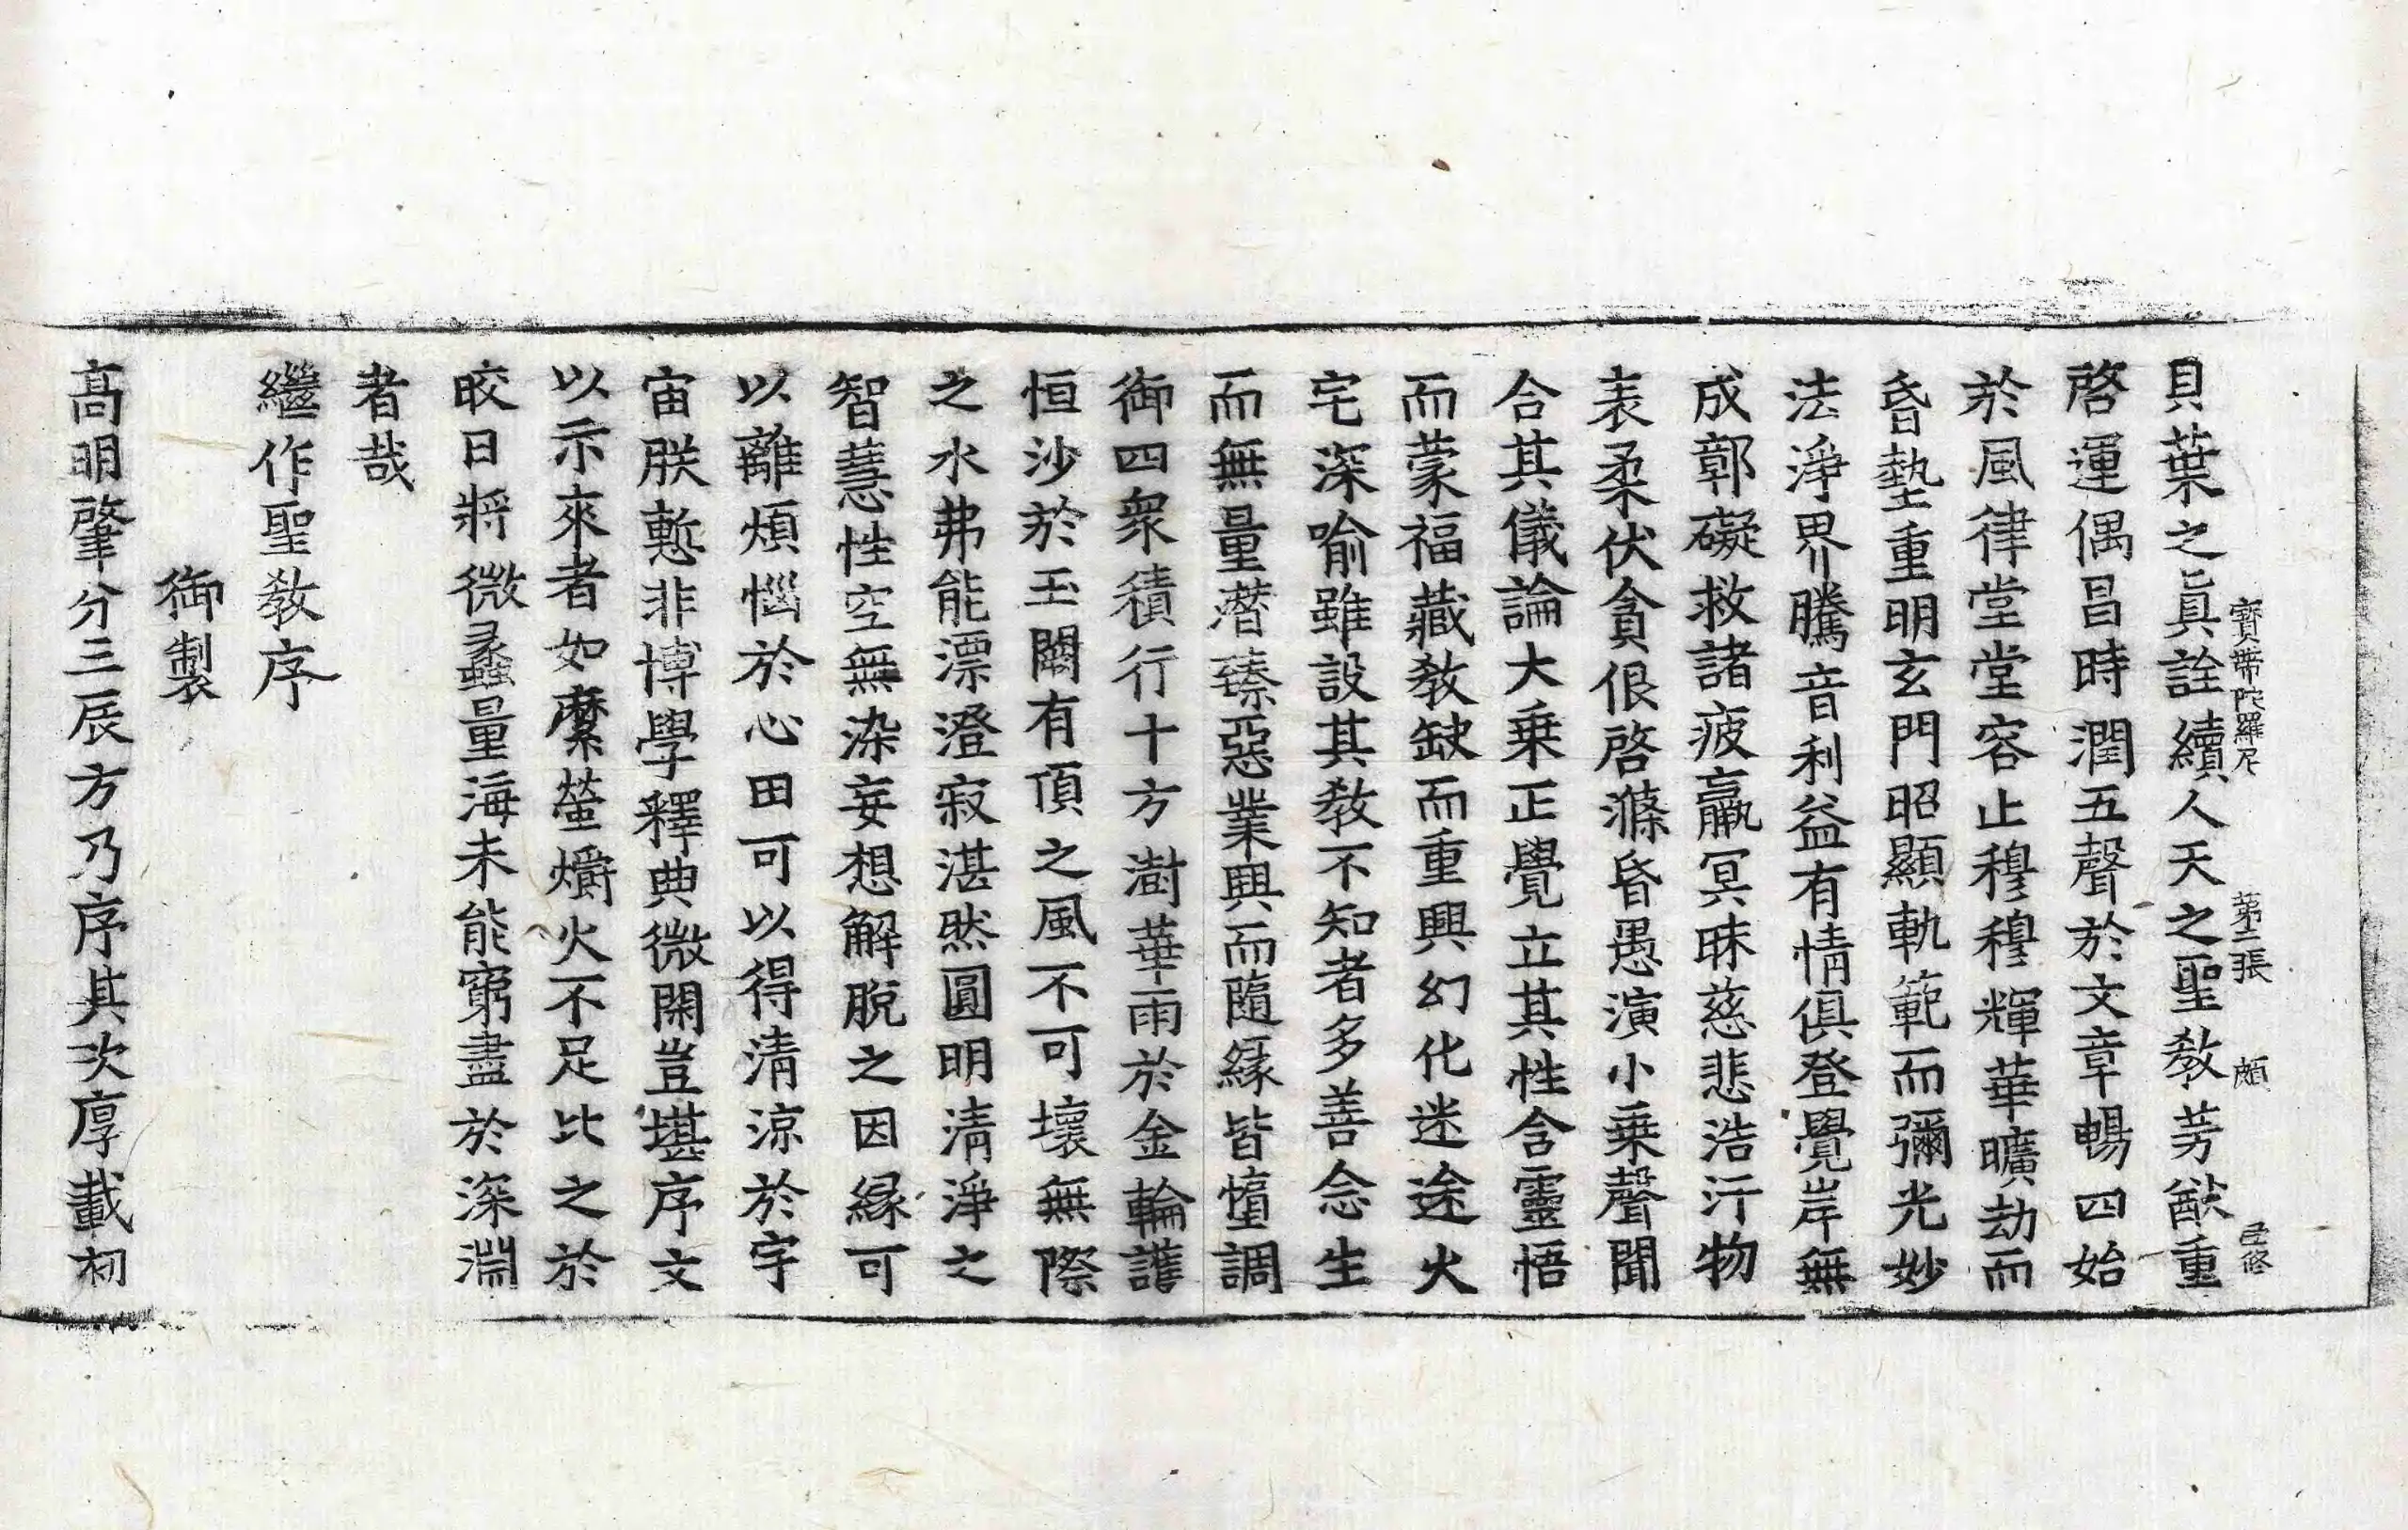 寶帶陀羅尼 第二張 頗
貝葉之眞詮續人天之聖敎芳猷重
啓運偶昌時潤五聲於文章暢四始
於風律堂堂容止穆穆輝華曠劫而
昏墊重明玄門昭顯軌範而彌光妙
法淨界騰音利益有情俱登覺岸無
成鄣礙救諸疲羸冥昧慈悲浩汗物
表柔伏貪佷啓滌昏愚演小乗聲聞
合其儀論大乗正覺立其性含靈悟
而蒙福藏敎缺而重興幻化迷途火
宅深喻雖設其敎不知者多善念生
而無量潛臻惡業興而隨緣皆墮調
御四衆積行十方澍華雨於金輪護
恒沙於玉闕有頂之風不可壞無際
之水弗能漂澄寂湛然圓明清淨之
智慧性空無染妄想解脫之因緣可
以離煩惱於心田可以得清涼於宇
宙朕慙非博學釋典微閑豈堪序文
以示來者如縻螢爝火不足比之於
皎日將微蠡量海未能窮盡於深淵
者哉
繼作聖敎序
御製
高明肇分三辰方乃序其次厚載初